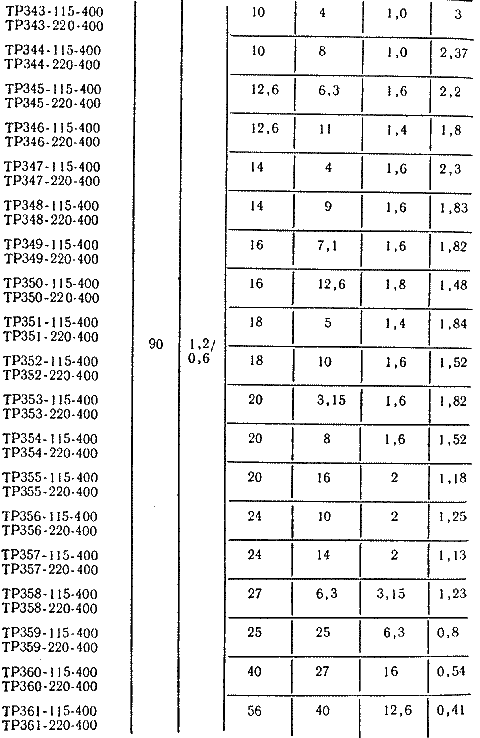 ТР343-115-400 10 4 1,0 3
ТР343-220-400
ТР344-115-400 10 8 1,0 2,37
ТР344-220-400
ТР345-115-400 12,6 6,3 1,6 2,2
ТР345-220-400
ТР346-115-400 12,6 11 1,4 1,8
ТР346-220-400
ТР347-115-400 14 4 1,6 2,3
ТР347-220-400
ТР348-115-400 14 9 1,6 1,83
ТР348-220-400
ТР349-115-400 16 7,1 1,6 1,82
ТР349-220-400
ТР350-115-400 16 12,6 1,8 1,48
ТР350-220-400
ТР351-115-400 18 5 1,4 1,84
ТР351-220-400
90 1,2/
0,6
ТР352-115-400 18 10 1,6 1,52
ТР352-220-400
ТР353-115-400 20 3,15 1,6 1,82
ТР353-220-400
ТР354-115-400 20 8 1,6 1,52
ТР354-220-400
ТР355-115-400 20 16 2 1,18
ТР355-220-400
ТР356-115-400 24 10 2 1,25
ТР356-220-400
ТР357-115-400 24 14 2 1,13
ТР357-220-400
ТР358-115-400 27 6,3 3,15 1,23
ТР358-220-400
ТР359-115-400 25 25 6,3 0,8
ТР359-220-400
ТР360-115-400 40 27 16 0,54
ТР360-220-400
ТР361-115-400 56 40 12,6 0,41
ТР361-220-400